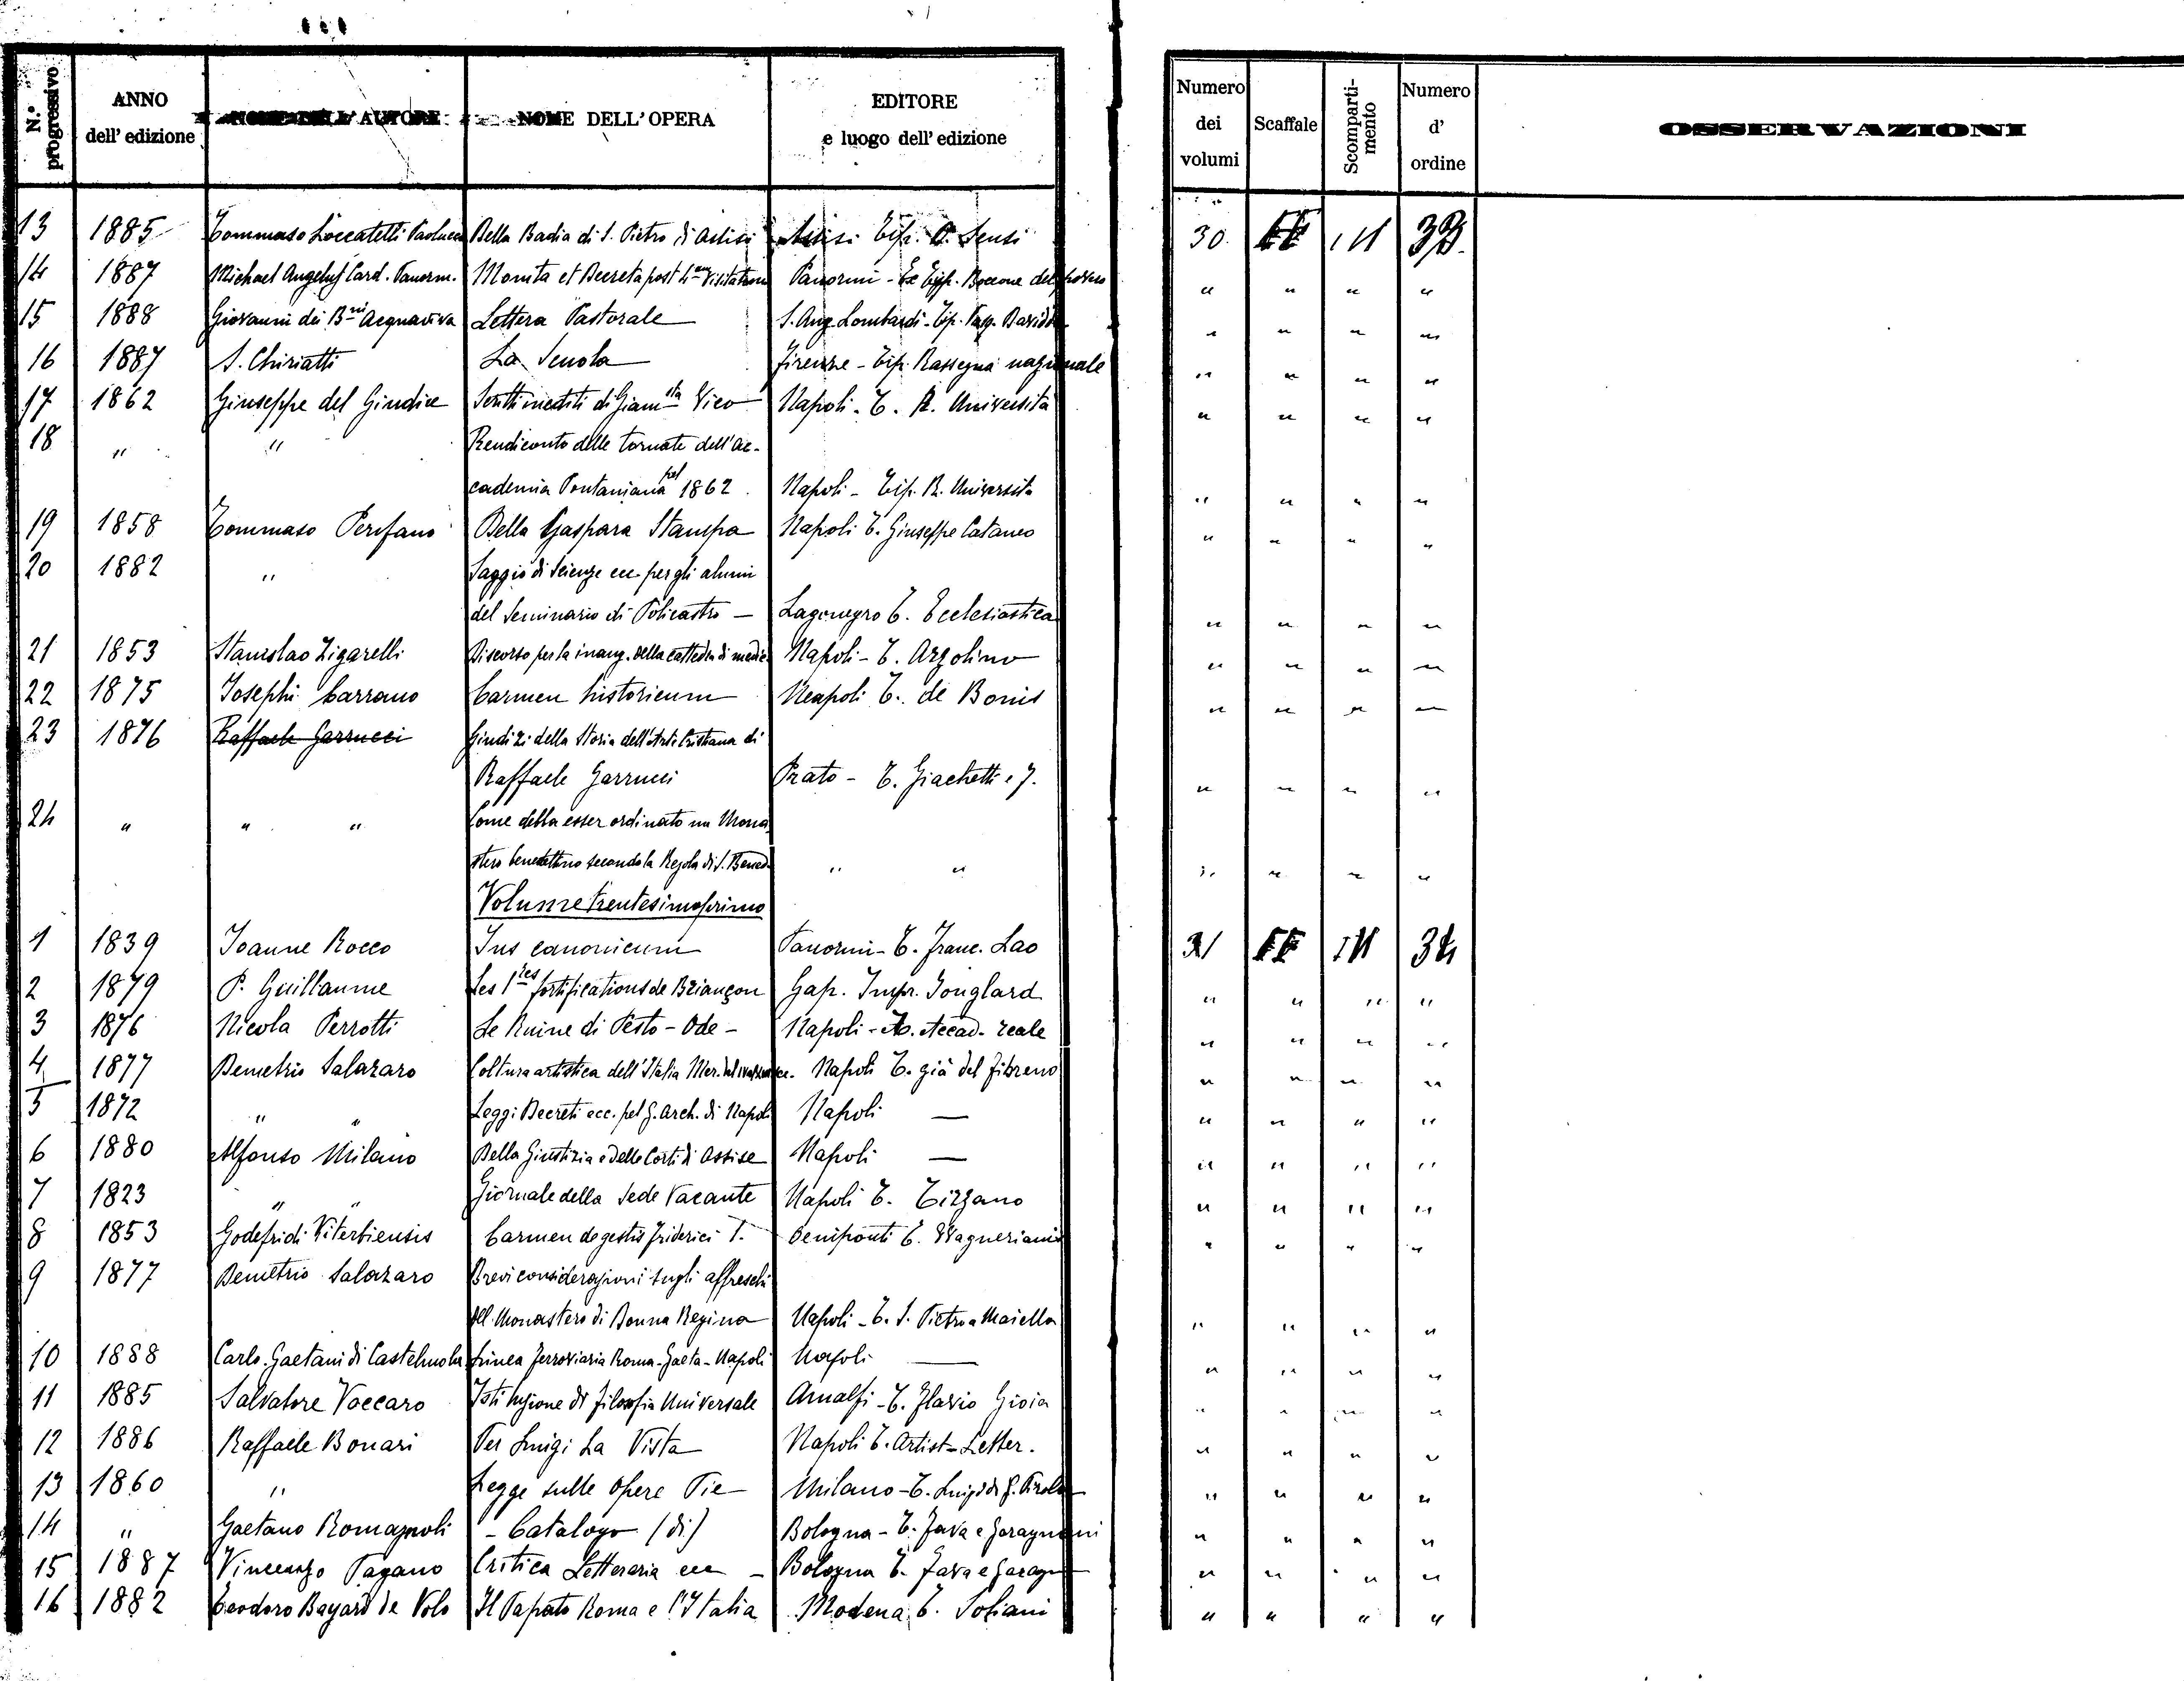 N.° progressivo | ANNO dell' edizione | NOME DELL' AUTORE | NOME DELL' OPERA | EDITORE e luogo dell' edizione | Numero dei volumi | Scaffale | Scomparti-mento | Numero d' ordine | OSSERVAZIONI
13 1885 Tommaso Loccatelli Paolucci Della Badia di S. Pietro di Assisi Assisi Tip. Sensi 30 III
14 1887 Michael Angelus Card. Panorm. Monita et Decreta post Visitationem Panormi - Ex Typ. Boccone del povero " " " "
15 1888 Giovanni dei B.ni Acquaviva Lettera Pastorale S. Ang. Lombardi - Tip. " " " "
16 1887 S. Chiriatti La Scuola Firenze - Tip. Rassegna nazionale " " " "
17 1862 Giuseppe del Giudice Scritti inediti di Giam.sta Vico Napoli - T. R. Università " " " "
18 " " Rendiconto delle tornate dell'Ac-
cademia Pontaniana pel 1862. Napoli - Tip. R. Università " " " "
19 1858 Tommaso Perifano Della Gaspara Stampa Napoli T. Giuseppe Cataneo " " " "
20 1882 " Saggio di Scienze ecc. per gli alunni
del Seminario di Policastro — Lagonegro T. Ecclesiastica " " " "
21 1853 Stanislao Zigarelli Discorso per la inaug. della cattedra di medic. Napoli - T. Azzolino " " " "
22 1875 Josephi Carrano Carmen historicum Neapoli T. de Bonis " " " "
23 1876 Raffaele Garrucci Giudizi della Storia dell'Arte Cristiana di
Raffaele Garrucci Prato - T. Giachetti e F. " " " "
24 " " " Come debba esser ordinato un Mona
stero benedettino secondo la Regola di S. Bened. " " " " " "
Volume trentesimoprimo
1 1839 Joanne Rocco Jus canonicum Panormi - T. Franc. Lao 31 III 34
2 1879 P. Guillaume Les 1res fortifications de Briançon Gap. Impr. Jouglard " " " "
3 1876 Nicola Perrotti Le Ruine di Pesto - Ode - Napoli - Accad. reale " " " "
4 1877 Demetrio Salazaro Coltura artistica dell'Italia Mer. Napoli T. già del Fibreno " " " "
5 1872 " " Leggi Decreti ecc. pel G. Arch. di Napoli Napoli — " " " "
6 1880 Alfonso Milano Della Giustizia e delle Corti di Assise Napoli — " " " "
7 1823 " " Giornale della Sede Vacante Napoli T. Tizzano " " " "
8 1853 Godefridi Viterbiensis Carmen de gestis Friderici I. Oeniponti T. Wagnerianis " " " "
9 1877 Demetrio Salazaro Brevi considerazioni sugli affreschi
del Monastero di Donna Regina Napoli - T. S. Pietro a Maiella " " " "
10 1888 Carlo Gaetani di Castelmola Linea Ferroviaria Roma - Gaeta - Napoli Napoli — " " " "
11 1885 Salvatore Vaccaro Istituzione di Filosofia Universale Amalfi - T. Flavio Gioia " " " "
12 1886 Raffaele Bonari Per Luigi La Vista Napoli T. Artist - Letter. " " " "
13 1860 " Legge sulle Opere Pie Milano - T. Luigi di G. Pirola " " " "
14 " Gaetano Romagnoli - Catalogo (di) Bologna - T. Fava e Garagnani " " " "
15 1887 Vincenzo Pagano Critica Letteraria ecc - Bologna T. Fava e Garagn " " " "
16 1882 Teodoro Bayard de Volo Il Papato Roma e l'Italia Modena, T. Soliani " " " "